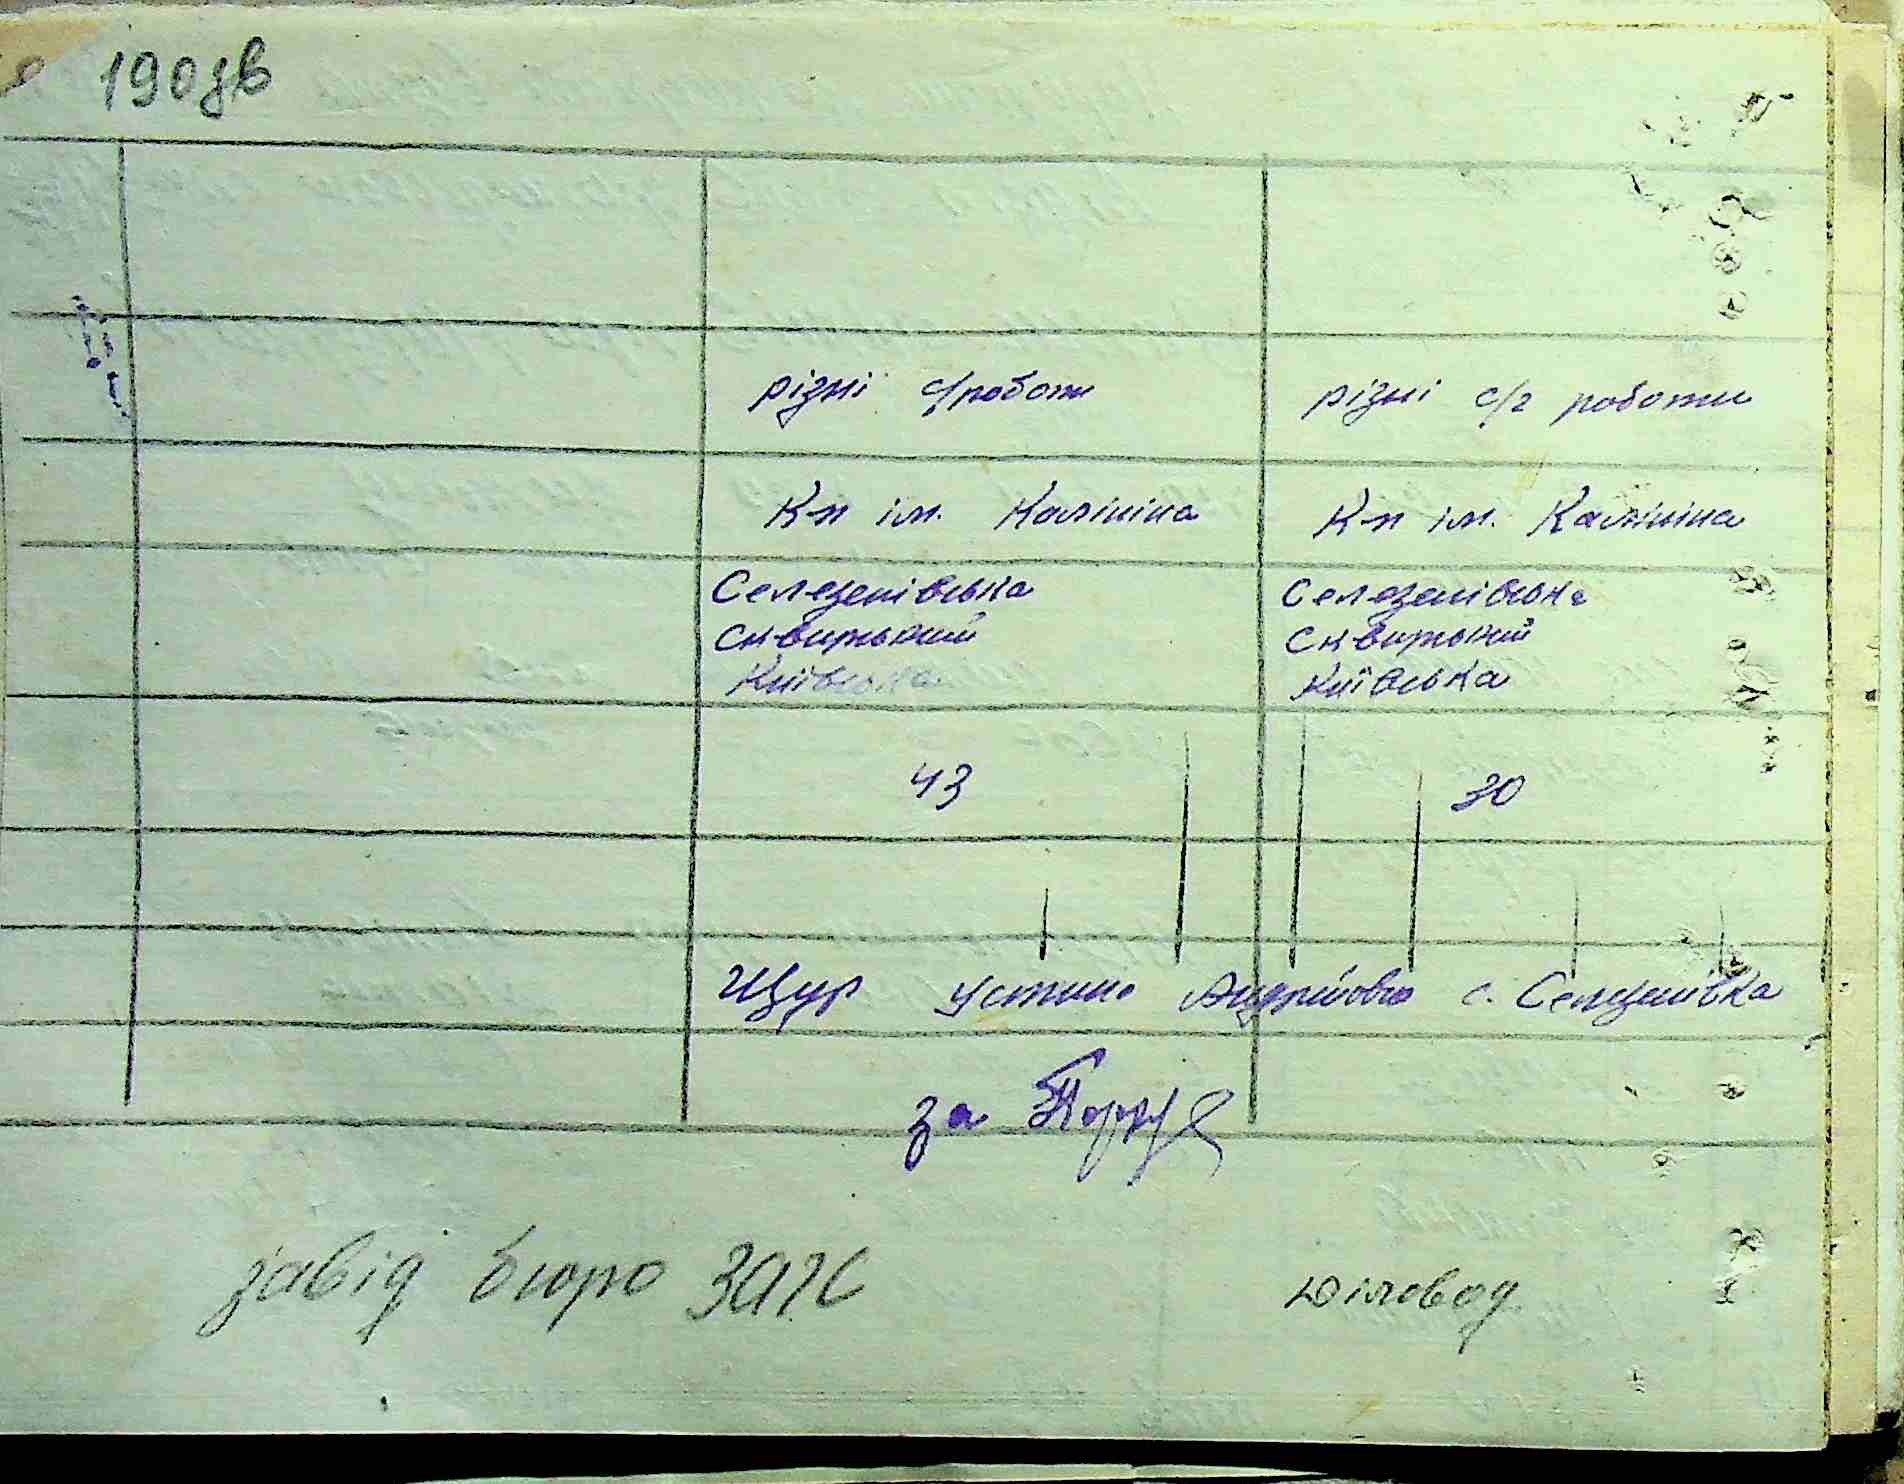 190зв
різні с/роботи
різні с/г роботи
Кп ім. Калініна
Кп ім. Калініна
Селезенівська
Сквирський
Київська
Селезенівська
Сквирський
Київська
43
30
Щур Устина Андріївна с. Селезенівка
за
завід бюро ЗАГС
Діловод